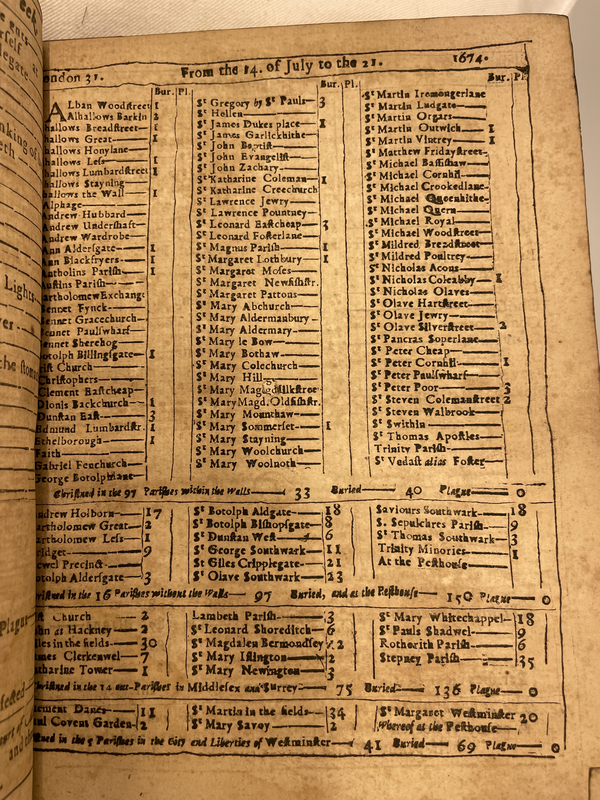 ondon 31. From the 14. of July to the 21. 1674.
Bur. Pl. Bur. Pl. Bur. Pl.
Alban Woodſtreet 1
Alhallows Barkin 2
hallows Breadſtreet 1
hallows Great 1
hallows Honylane
hallows Leſs 1
hallows Lumbardſtreet 1
hallows Stayning
hallows the Wall 1
Alphage
ndrew Hubbard
ndrew Underſhaft
ndrew Wardrobe
Ann Alderſgate 1
Ann Blackfryers 1
Antholins Pariſh 1
Auſtins Pariſh
artholomewExchange
ennet Fynck
ennet Gracechurch
ennet Paulſwharf
ennet Sherehog
otolph Billingſgate 1
riſt Church
Chriſtophers
Clement Eaſtcheap
Dionis Backchurch 1
Dunſtan Eaſt 3
Edmund Lumbardſtr. 1
Ethelborough 1
Faith
Gabriel Fenchurch
George Botolphlane
St Gregory by St Pauls 3
St Hellen
St James Dukes place 1
St James Garlickhithe
St John Baptiſt
St John Evangeliſt
St John Zachary
St Katharine Coleman 1
St Katharine Creechurch
St Lawrence Jewry
St Lawrence Pountney
St Leonard Eaſtcheap 3
St Leonard Foſterlane
St Magnus Pariſh 1
St Margaret Lothbury 1
St Margaret Moſes
St Margaret Newfiſhſtr.
St Margaret Pattons
St Mary Abchurch
St Mary Aldermanbury
St Mary Aldermary
St Mary le Bow
St Mary Bothaw
St Mary Colechurch
St Mary Hill
St Mary Magd Milkſtree
St MaryMagd.Oldfiſhſtr.
St Mary Mounthaw
St Mary Sommerſet 1
St Mary Stayning
St Mary Woolchurch
St Mary Woolnoth
St Martin Iremongerlane
St Martin Ludgate
St Martin Orgars
St Martin Outwich 1
St Martin Vintrey 1
St Matthew Fridayſtreet
St Michael Baſſiſhaw
St Michael Cornhil
St Michael Crookedlane
St Michael Queenhithe
St Michael Quern
St Michael Royal
St Michael Woodſtreet
St Mildred Breadſtreet
St Mildred Poultrey
St Nicholas Acons
St Nicholas Coleabby 1
St Nicholas Olaves
St Olave Hartſtreet
St Olave Jewry
St Olave Silverſtreet 2
St Pancras Soperlane
St Peter Cheap
St Peter Cornhil 1
St Peter Paulſwharf
St Peter Poor 3
St Steven Colemanſtreet 2
St Steven Walbrook
St Swithin
St Thomas Apoſtles
Trinity Pariſh
St Vedaſt alias Foſter
Chriſtned in the 97 Pariſhes within the Walls 33 Buried 40 Plague 0
ndrew Holborn 17
artholomew Great 2
artholomew Leſs 1
ridget 9
ewel Precinct
otolph Alderſgate 3
St Botolph Aldgate 18
St Botolph Biſhopſgate 8
St Dunſtan Weſt 6
St George Southwark 11
St Giles Cripplegate 21
St Olave Southwark 23
Saviours Southwark 18
S. Sepulchres Pariſh 9
St Thomas Southwark 3
Trinity Minories 1
At the Peſthouſe
riſtned in the 16 Pariſhes without the Walls 97 Buried, and at the Peſthouſe 150 Plague 0
Church 2
hn at Hackney 2
iles in the fields 30
ames Clerkenwel 7
atharine Tower 1
Lambeth Pariſh 3
St Leonard Shoreditch 6
St Magdalen Bermondſey 2
St Mary Iſlington 2
St Mary Newington 3
St Mary Whitechappel 18
St Pauls Shadwel 9
Rotherith Pariſh 6
Stepney Pariſh 35
hriſtned in the 12 out-Pariſhes in Middleſex and Surrey 75 Buried 136 Plague 0
lement Danes 11
aul Covent Garden 2
St Martin in the fields 34
St Mary Savoy 2
St Margaret Weſtminſter 20
Whereof at the Peſthouſe
ſtned in the 5 Pariſhes in the City and Liberties of Weſtminſter 41 Buried 69 Plague 0